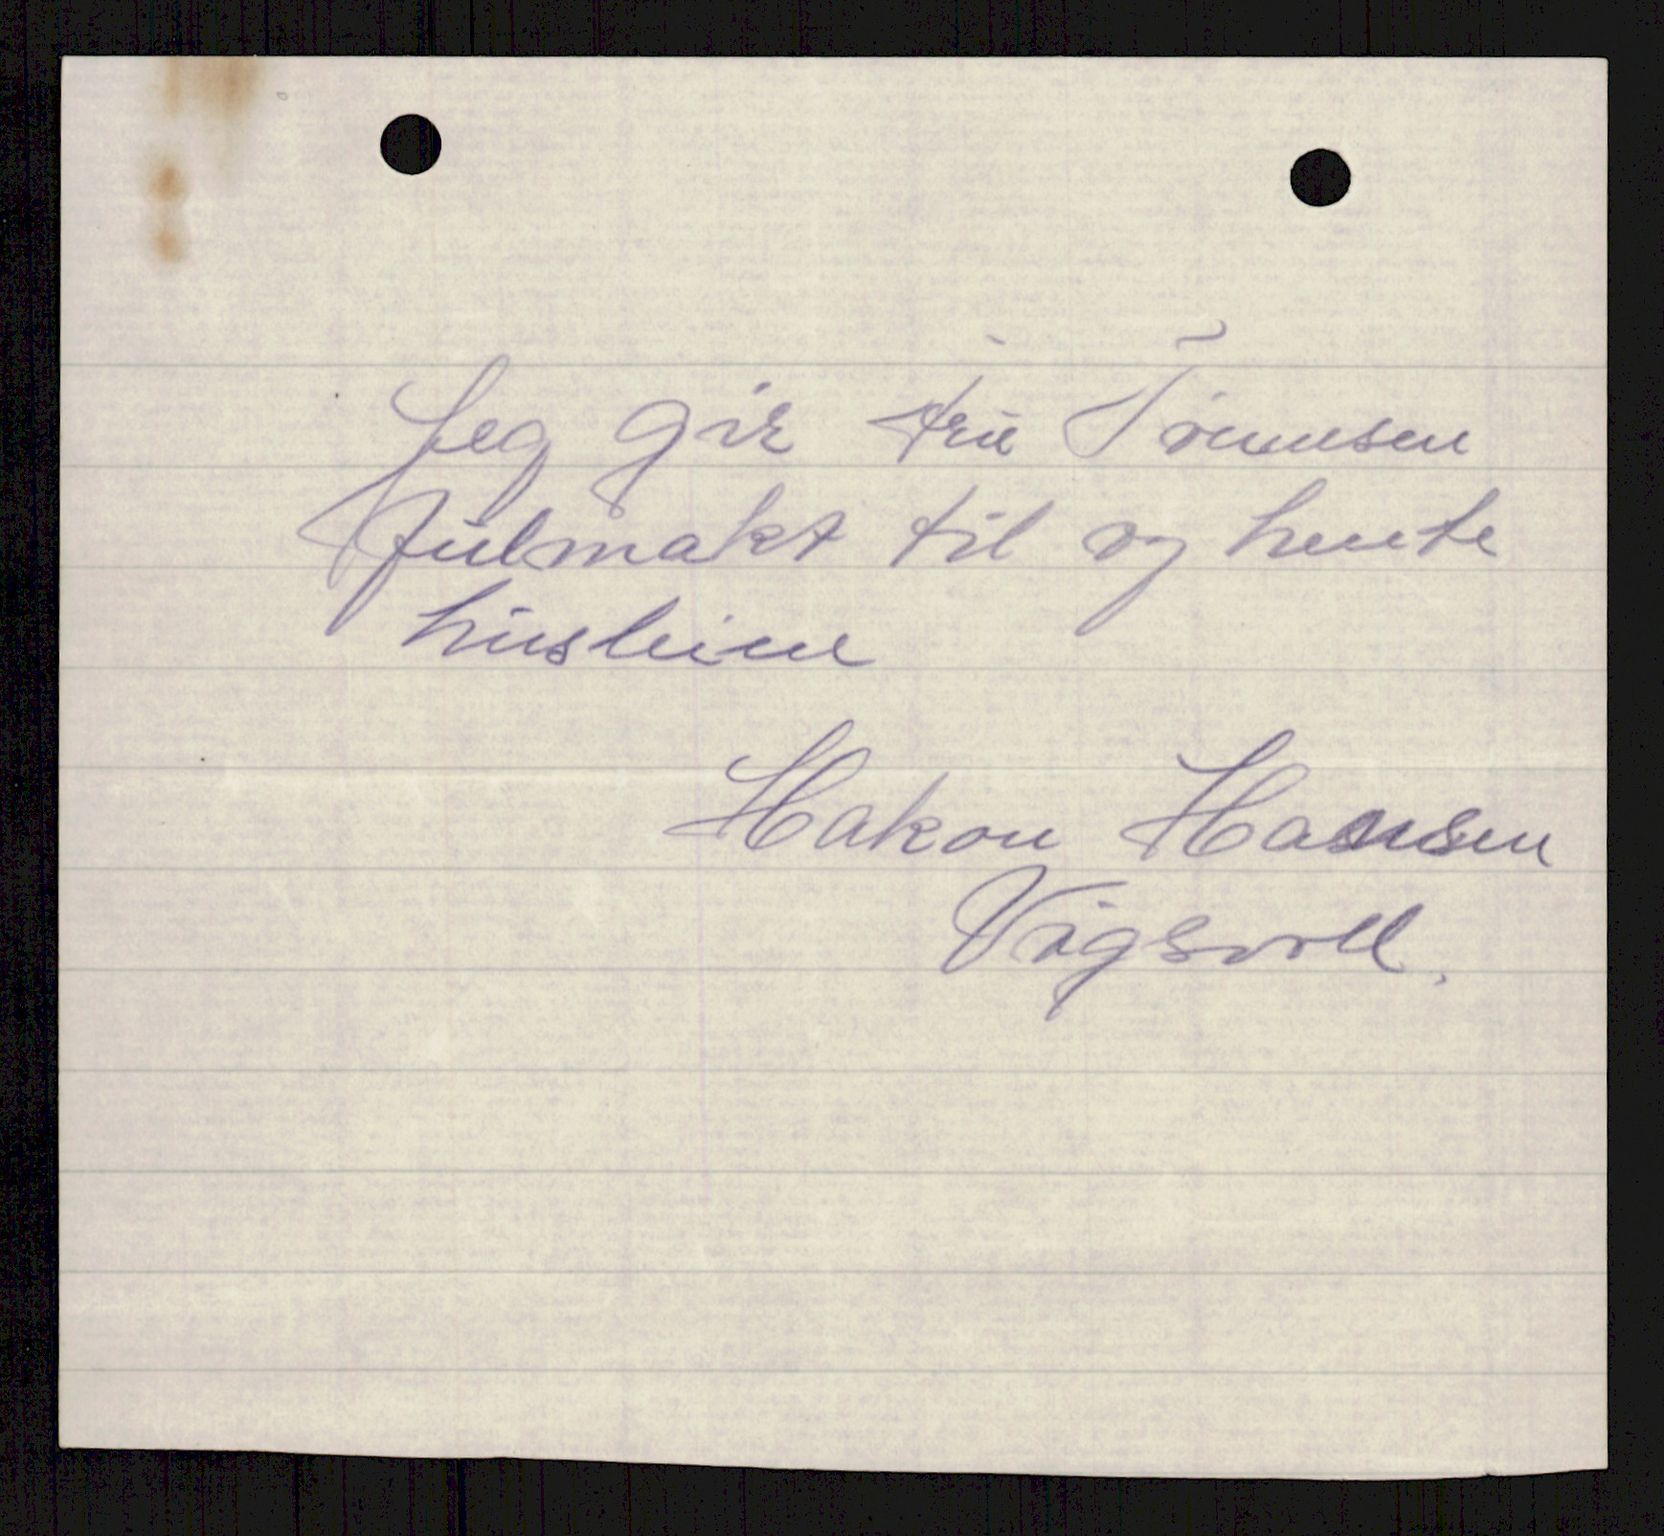 Jeg gir fru Tønnesen
fulmakt til og hente
husleien
Hakon Hansen
Vigsvoll.